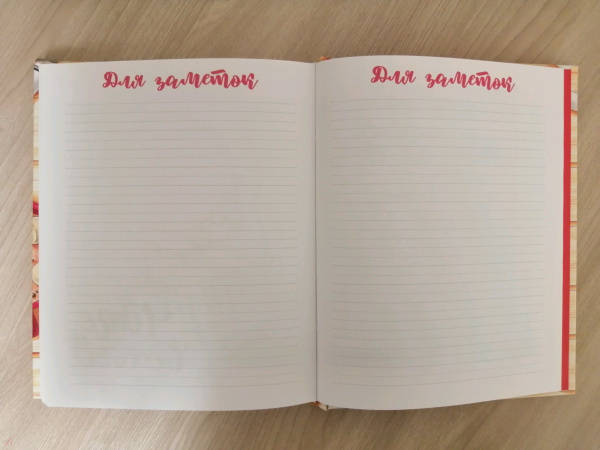 Для заметок
Для заметок